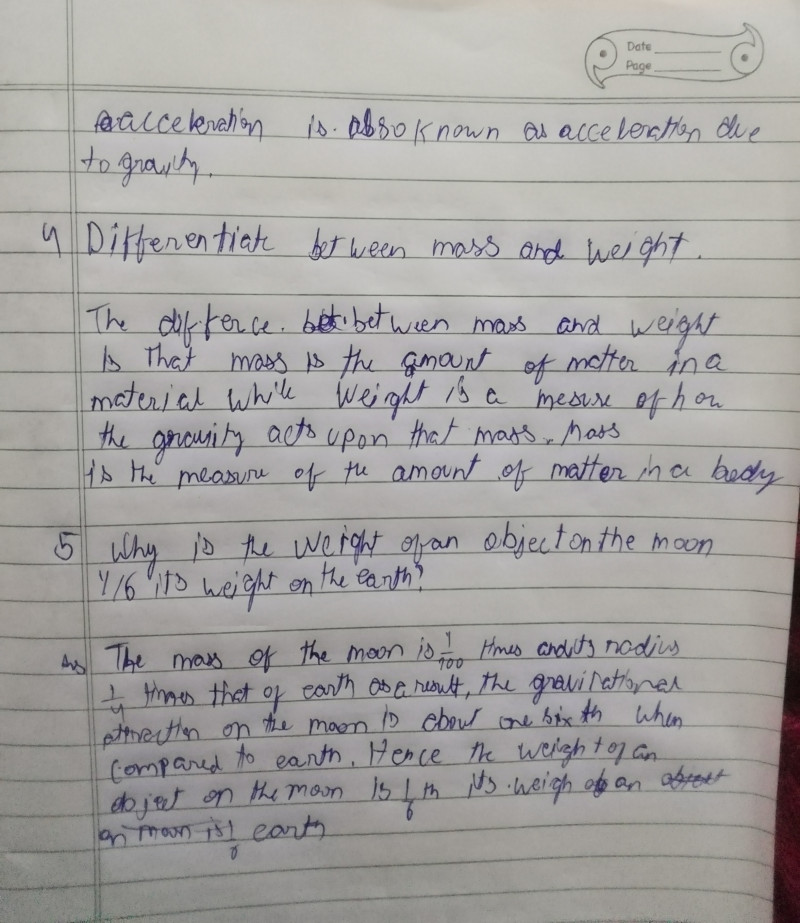 Date
Page
acceleration is also known as acceleration due
to gravity.
4 Differentiate between mass and weight.
The differce. between mass and weight
is that mass is the amount of matter in a
material while weight is a mesure of how
the gravity acts upon that mass. Mass
is the measure of the amount of matter in a body
5 Why is the weight of an object on the moon
1/6 its weight on the earth?
Ans The mass of the moon is 1/100 times and its radius
1/4 times that of earth as a result, the gravitational
attraction on the moon is about one sixth when
compared to earth. Hence the weight of an
object on the moon is 1/6 th its weigh an
on moon is 1/6 earth